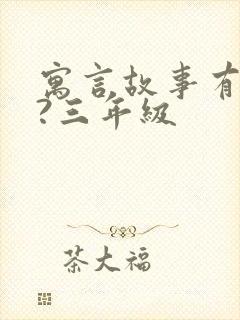 寓言故事有
?三年級
茶大福